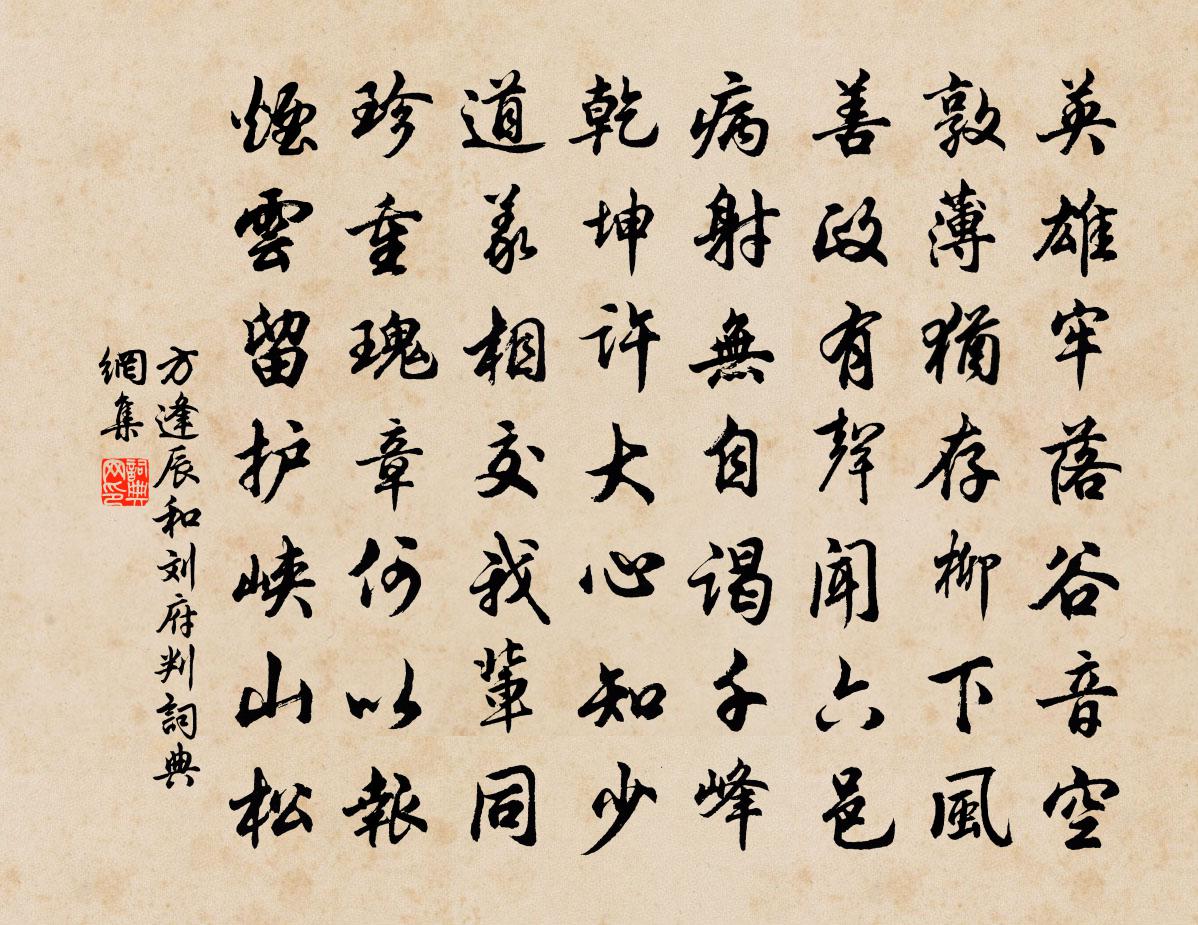 英雄牢落谷音空
敦薄猶存柳下風
善政有聲聞六邑
病射無自謁千峰
乾坤許大心知少
道義相交我輩同
珍重瑰章何以報
煙雲留护峡山松
方逢辰和刘府判詞典
網集
詞典网印